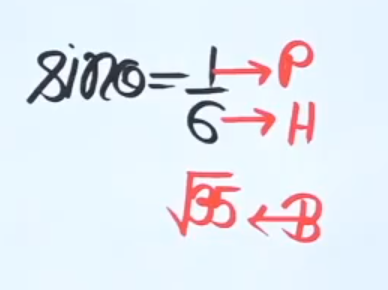 sinθ = 1/6 → P
→ H
√35 ← B